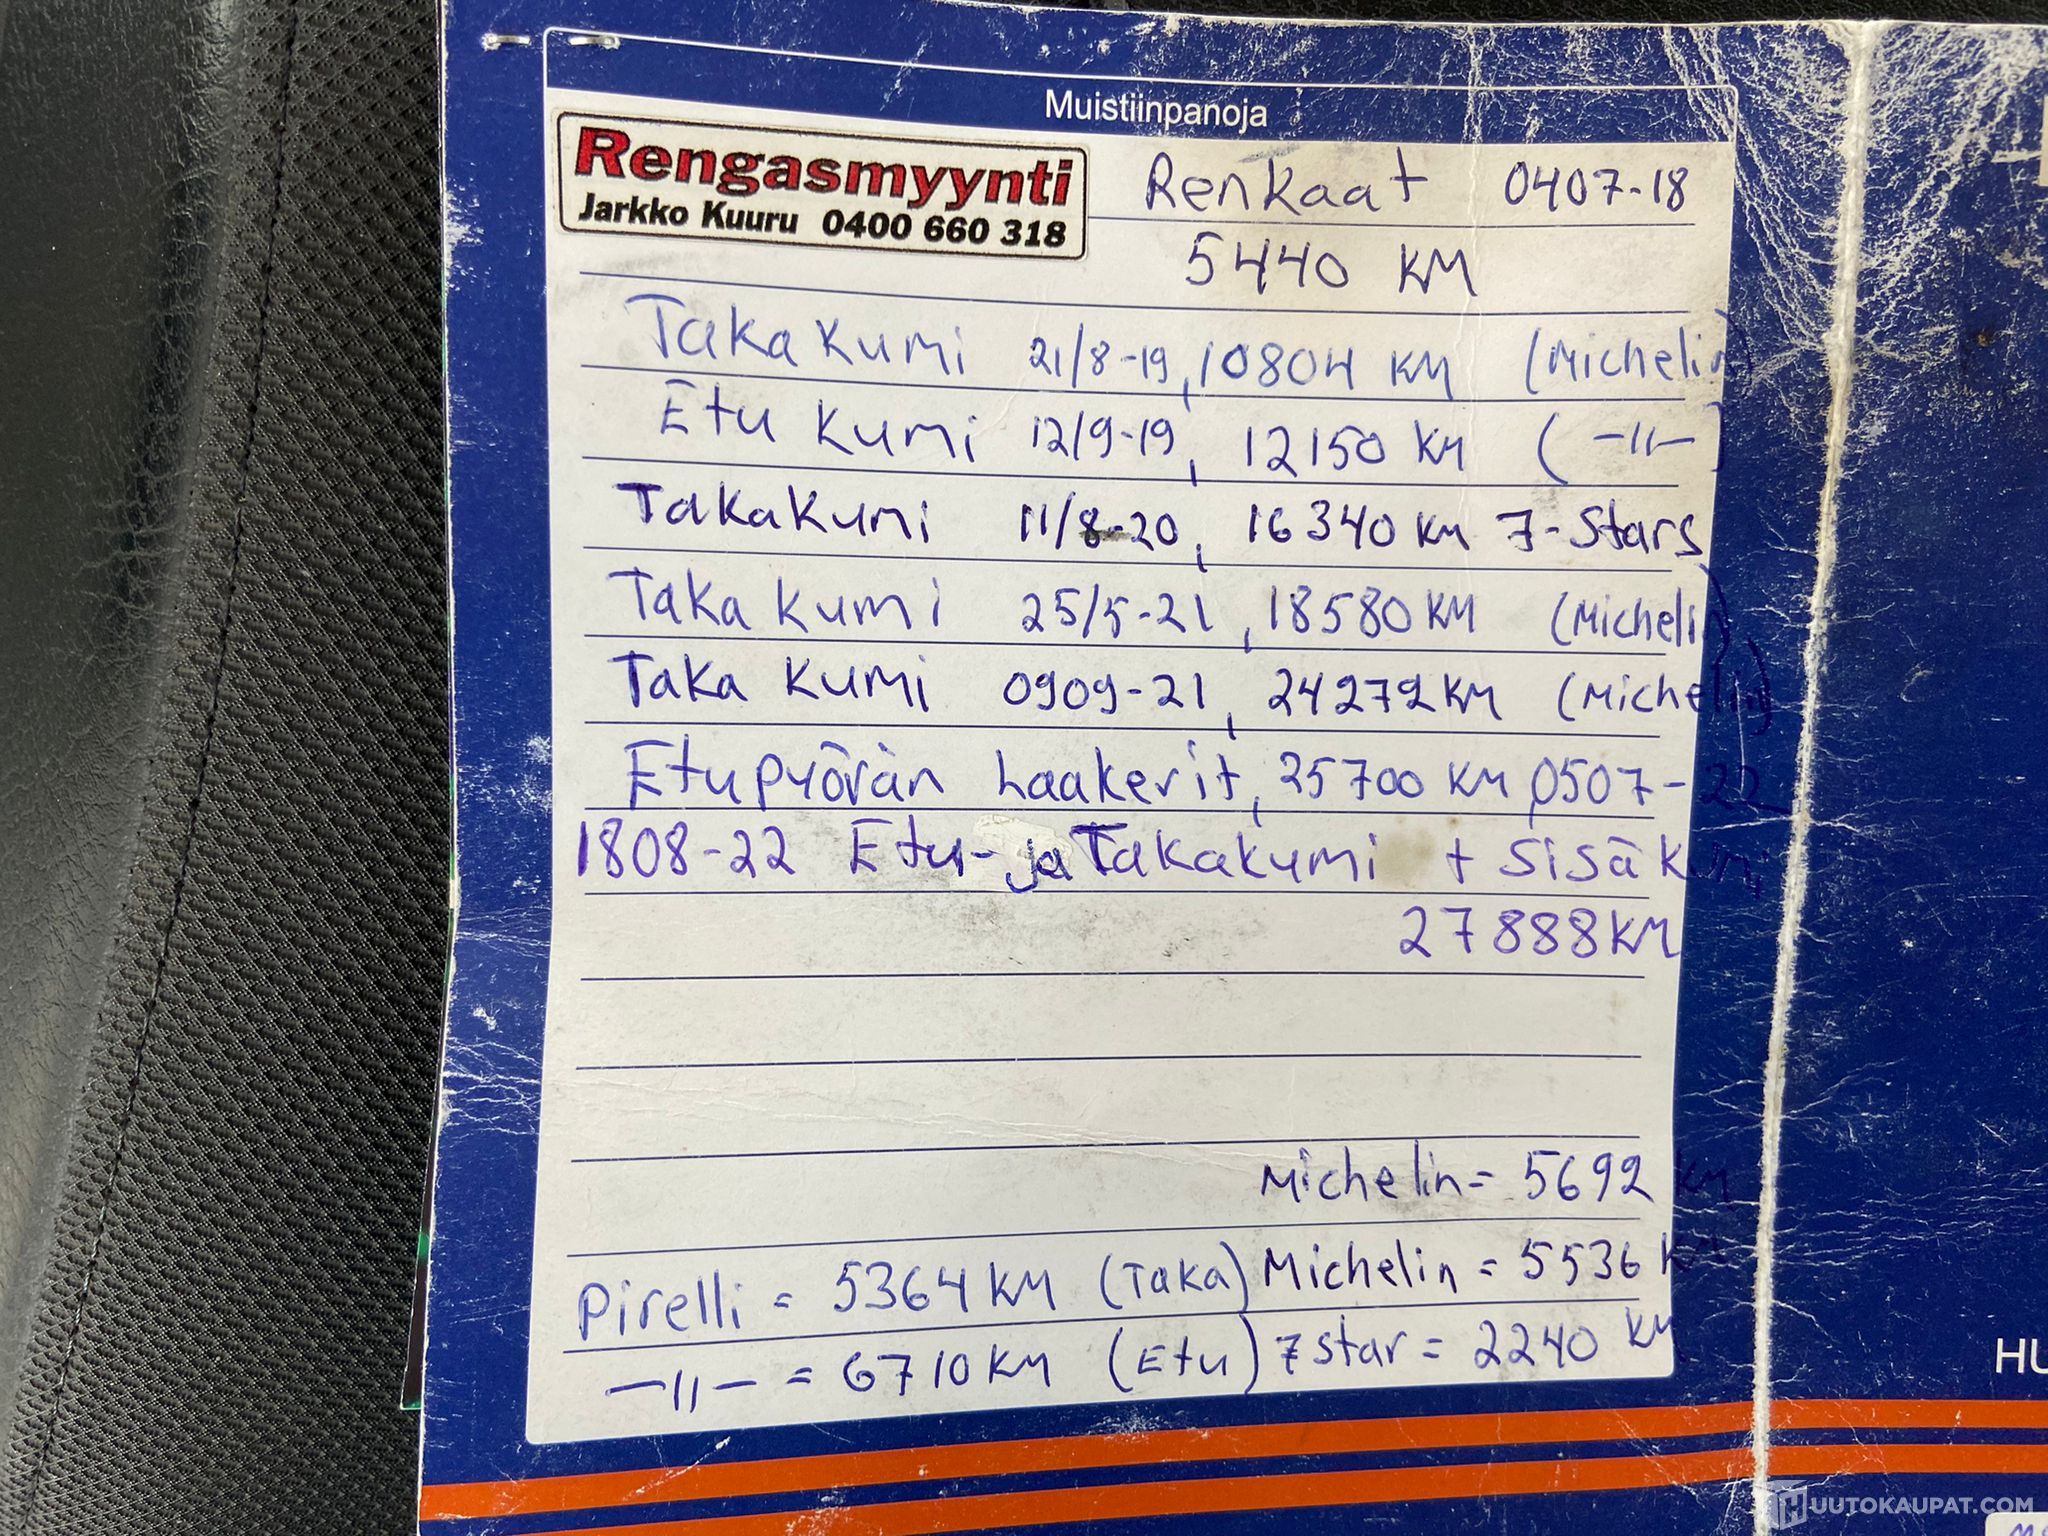 Muistiinpanoja
Rengasmyynti
Jarkko Kuuru 0400 660 318
Renkaat 0407-18
5440 KM
Takakumi 21/8-19, 10804 KM (Michelin)
Etu kumi 12/9-19, 12150 KM ( -11- )
Takakumi 11/8-20, 16340 KM 7-Stars
Taka kumi 25/5-21, 18580 KM (Michelin)
Taka kumi 0909-21, 24272 KM (Michelin)
Etupyörän laakerit, 25700 KM 0507-22
1808-22 Etu- ja Takakumi + Sisäkumi
27888 KM
Michelin = 5692 KM
Pirelli = 5364 KM (Taka) Michelin = 5536 KM
-11- = 6710 KM (Etu) 7 Star = 2240 KM
HU
HUUTOKAUPAT.COM